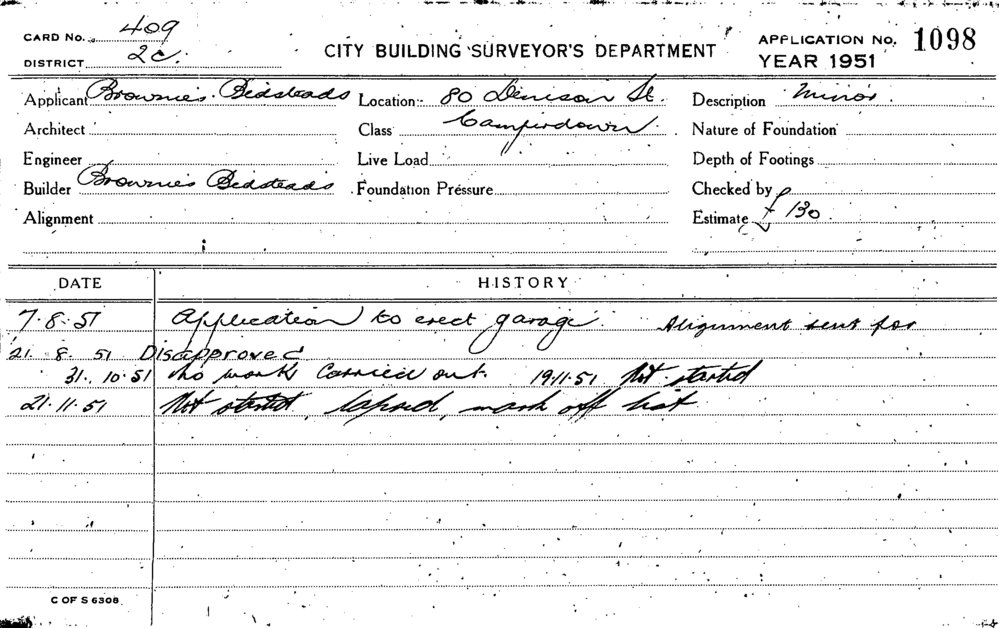 CARD No. 409
DISTRICT 2c.
CITY BUILDING SURVEYOR'S DEPARTMENT
APPLICATION No. 1098
YEAR 1951
Applicant Brownies Bedsteads Location:- 80 Denison St. Description Minor.
Architect Class Camperdown. Nature of Foundation
Engineer Live Load Depth of Footings
Builder Brownies Bedsteads Foundation Pressure Checked by
Alignment Estimate £130
DATE HISTORY
7.8.51 Application to erect garage. Alignment sent for
21. 8. 51 Disapproved
31. 10.51 No work carried out. 19.11.51 Not started
21.11.51 Not started, lapsed, mark off list
C OF S 6308